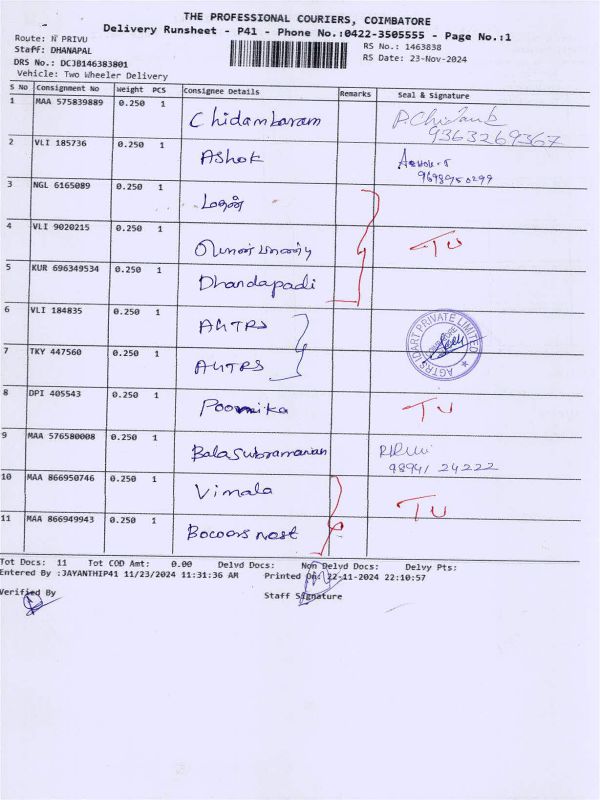 THE PROFESSIONAL COURIERS, COIMBATORE
Delivery Runsheet - P41 - Phone No.:0422-3505555 - Page No.:1
Route: N PRIVU
RS No.: 1463838
Staff: DHANAPAL
RS Date: 23-Nov-2024
DRS No.: DCJB146383801
Vehicle: Two Wheeler Delivery
S No Consignment No Weight PCS Consignee Details Remarks Seal & Signature
1 MAA 575839889 0.250 1 Chidambaram
9363269367
2 VLI 185736 0.250 1 Ashok Ashok-S
3 NGL 6165089 0.250 1 மதன்
4 VLI 9020215 0.250 1 TU
5 KUR 696349534 0.250 1 Dhandapadi
6 VLI 184835 0.250 1 AGTRS AGTRSIDART PRIVATE LIMITED
7 TKY 447560 0.250 1 AGTRS
8 DPI 405543 0.250 1 Poornika TU
9 MAA 576580008 0.250 1 Balasubramanian
98941 24222
10 MAA 866950746 0.250 1 Vimala TU
11 MAA 866949943 0.250 1
Tot Docs: 11 Tot COD Amt: 0.00 Delvd Docs: Non Delvd Docs: Delvy Pts:
Entered By :JAYANTHIP41 11/23/2024 11:31:36 AM Printed On: 22-11-2024 22:10:57
Verified By Staff Signature